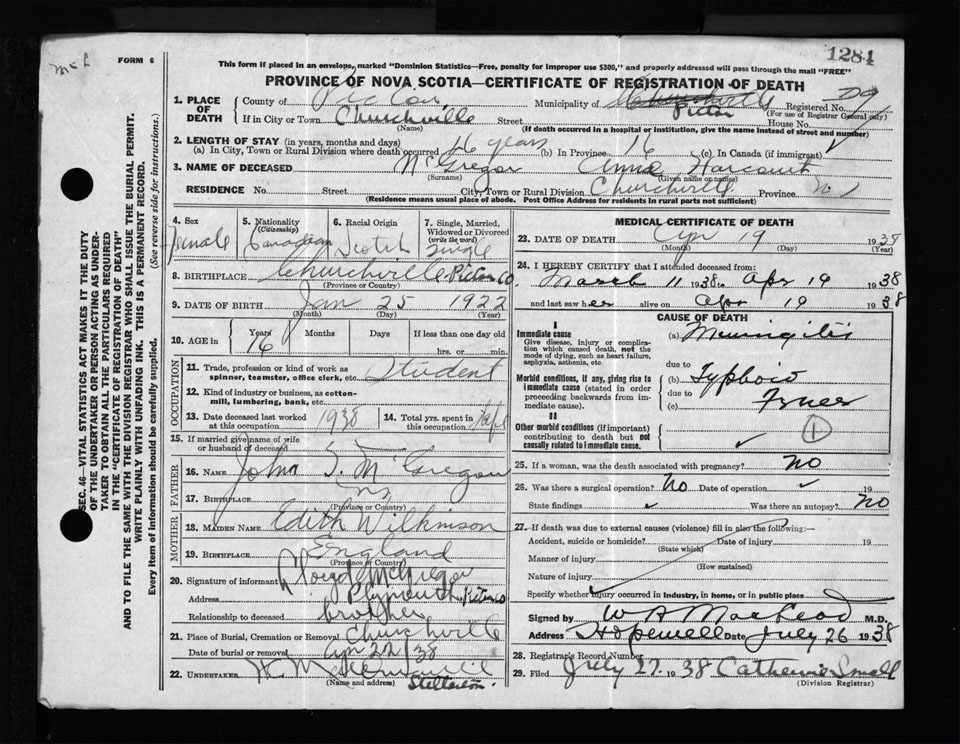 1281
McL
FORM 6
This form if placed in an envelope, marked "Dominion Statistics—Free, penalty for improper use $300," and properly addressed will pass through the mail "FREE"
PROVINCE OF NOVA SCOTIA—CERTIFICATE OF REGISTRATION OF DEATH
1. PLACE OF DEATH
County of Pictou Municipality of Pictou Registered No.
(For use of Registrar General only)
If in City or Town Churchville Street House No.
(Name) (If death occurred in a hospital or institution, give the name instead of street and number)
2. LENGTH OF STAY (in years, months and days)
(a) In City, Town or Rural Division where death occurred 16 years (b) In Province 16 (c) In Canada (if immigrant) ✓
3. NAME OF DECEASED McGregor Anna Harcourt
(Surname) (Given name or names)
RESIDENCE No. Street City, Town or Rural Division Churchville Province NS
(Residence means usual place of abode. Post Office Address for residents in rural parts not sufficient)
4. Sex Female
5. Nationality (Citizenship) Canadian
6. Racial Origin Scotch
7. Single, Married, Widowed or Divorced (write the word) Single
8. BIRTHPLACE Churchville Pictou Co
(Province or Country)
9. DATE OF BIRTH Jan 25 1922
(Month) (Day) (Year)
10. AGE in Years 16 Months Days If less than one day old
hrs. or min.
OCCUPATION
11. Trade, profession or kind of work as spinner, teamster, office clerk, etc. Student
12. Kind of industry or business, as cotton-mill, lumbering, bank, etc.
13. Date deceased last worked at this occupation 1938
14. Total yrs. spent in this occupation
15. If married give name of wife or husband of deceased
FATHER
16. NAME John S. McGregor
17. BIRTHPLACE NS
(Province or Country)
MOTHER
18. MAIDEN NAME Edith Wilkinson
19. BIRTHPLACE England
(Province or Country)
20. Signature of informant Lloyd McGregor
Address Plymouth Pictou Co
Relationship to deceased brother
21. Place of Burial, Cremation or Removal Churchville
Date of burial or removal Apr 22/38
22. UNDERTAKER H M
(Name and address) Stellarton.
MEDICAL CERTIFICATE OF DEATH
23. DATE OF DEATH Apr 19 1938
(Month) (Day) (Year)
24. I HEREBY CERTIFY that I attended deceased from:
March 11 1938 to Apr 19 1938
and last saw her alive on Apr 19 1938
CAUSE OF DEATH
I
Immediate cause
Give disease, injury or complication which caused death, not the mode of dying, such as heart failure, asphyxia, asthenia, etc.
(a) Meningitis
due to
Morbid conditions, if any, giving rise to immediate cause (stated in order proceeding backwards from immediate cause).
(b) Typhoid
due to
(c) Fever
II
Other morbid conditions (if important) contributing to death but not causally related to immediate cause.
1
✓
25. If a woman, was the death associated with pregnancy? No
26. Was there a surgical operation? No Date of operation ✓ 19
State findings ✓ Was there an autopsy? No
27. If death was due to external causes (violence) fill in also the following:—
Accident, suicide or homicide? Date of injury 19
(State which)
Manner of injury
(How sustained)
Nature of injury
Specify whether injury occurred in industry, in home, or in public place
Signed by W A MacLeod M.D.
Address Hopewell Date July 26 1938
28. Registrar's Record Number
29. Filed July 27 1938 Catherine Small
(Division Registrar)
SEC. 46—VITAL STATISTICS ACT MAKES IT THE DUTY
OF THE UNDERTAKER OR PERSON ACTING AS UNDER-
TAKER TO OBTAIN ALL THE PARTICULARS REQUIRED
IN THE "CERTIFICATE OF REGISTRATION OF DEATH"
AND TO FILE THE SAME WITH THE DIVISION REGISTRAR WHO SHALL ISSUE THE BURIAL PERMIT.
WRITE PLAINLY WITH UNFADING INK. THIS IS A PERMANENT RECORD.
Every item of information should be carefully supplied. (See reverse side for instructions).